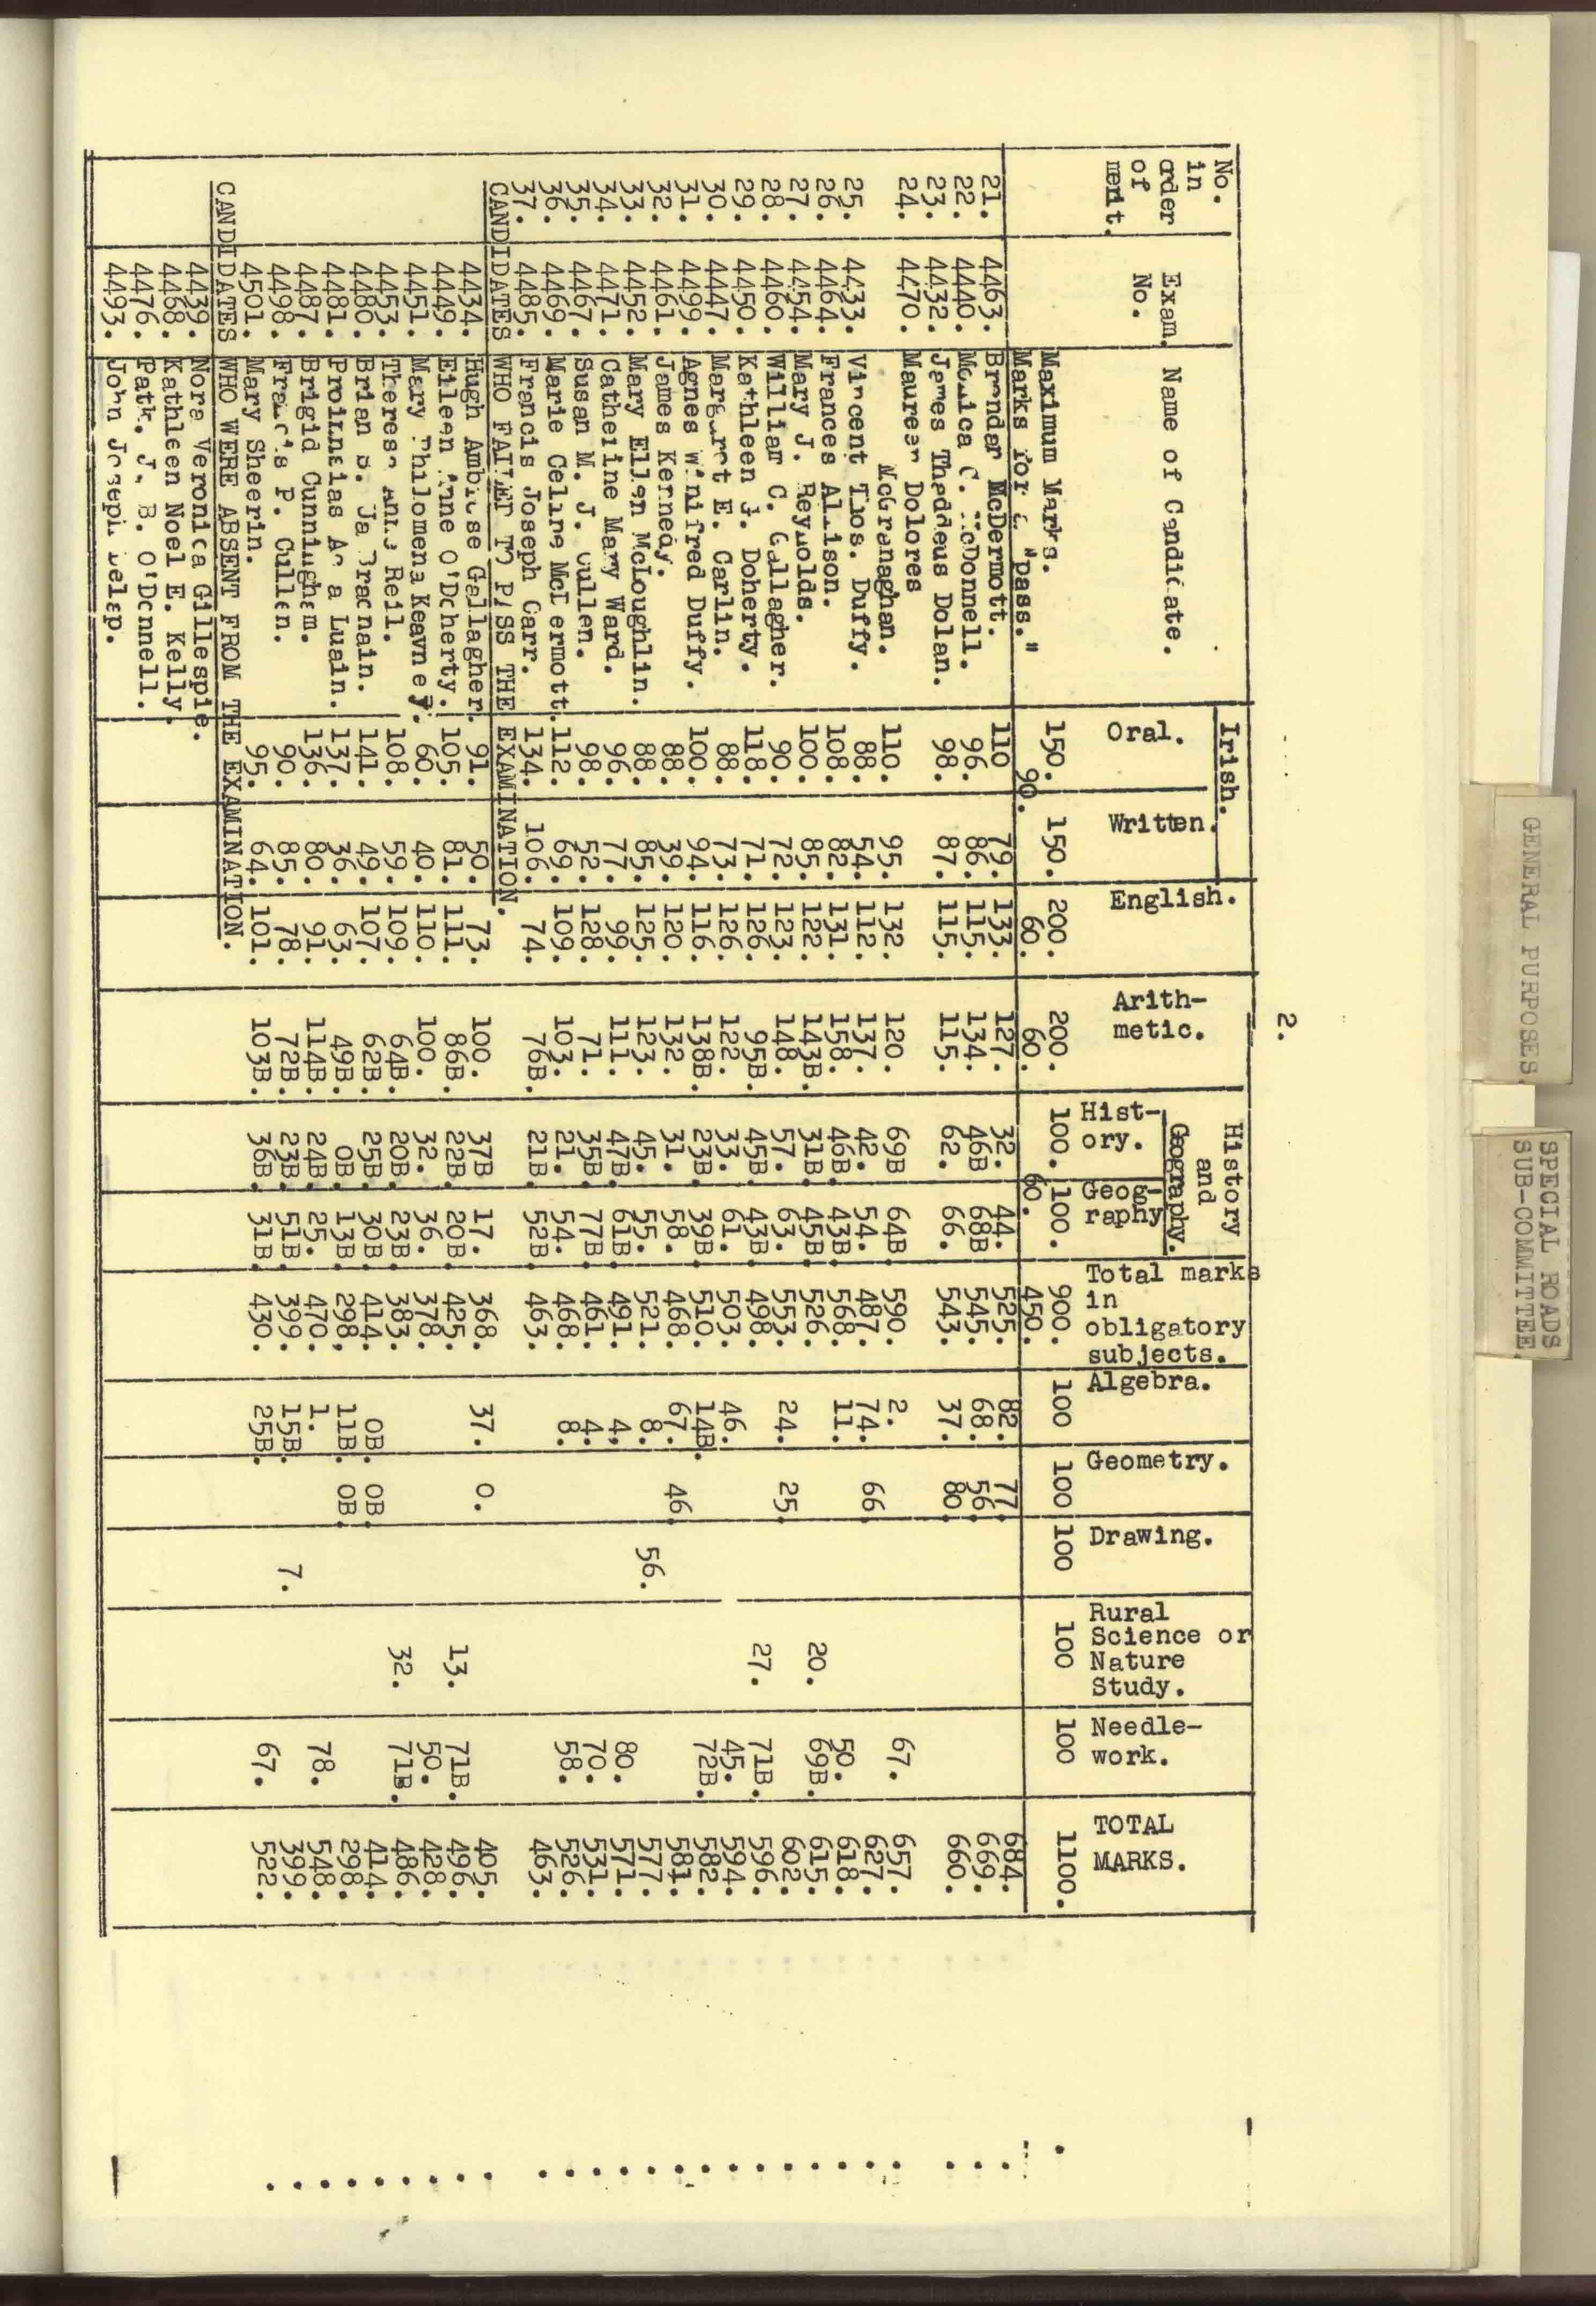 2.
No. in order of merit.
Exam. No.
Name of Candidate.
Irish.
Oral.
Written.
English.
Arith-metic.
History and Geography.
Hist-ory.
Geog-raphy
Total marks in obligatory subjects.
Algebra.
Geometry.
Drawing.
Rural Science or Nature Study.
Needle-work.
TOTAL MARKS.
Maximum Marks. 150. 150. 200. 200. 100. 100. 900. 100 100 100 100 100 1100.
Marks for a "pass." 90. 60. 60. 60. 450.
21. 4463. Brendan McDermott. 110 79. 133. 127. 32. 44. 525. 82. 77. 684.
22. 4440. Monica C. McDonnell. 96. 86. 115. 134. 46B 68B 545. 68. 56. 669.
23. 4432. James Thaddeus Dolan. 98. 87. 115. 115. 62. 66. 543. 37. 80. 660.
24. 4470. Maureen Dolores
McGranaghan. 110. 95. 132. 120. 69B 64B 590. 2. 67. 657.
25. 4433. Vincent Thos. Duffy. 88. 54. 112. 137. 42. 54. 487. 74. 66. 627.
26. 4464. Frances Allison. 108. 82. 131. 158. 46B. 43B. 568. 11. 50. 618.
27. 4454. Mary J. Reynolds. 100. 85. 122. 143B. 31B. 45B. 526. 20. 69B. 615.
28. 4460. William C. Gallagher. 90. 72. 123. 148. 57. 63. 553. 24. 25. 602.
29. 4450. Kathleen J. Doherty. 118. 71. 126. 95B. 45B. 43B. 498. 27. 71B. 596.
30. 4447. Margaret E. Carlin. 88. 73. 126. 122. 33. 61. 503. 46. 45. 594.
31. 4499. Agnes Winifred Duffy. 100. 94. 116. 138B. 23B. 39B. 510. 14B. 72B. 582.
32. 4461. James Kennedy. 88. 39. 120. 132. 31. 58. 468. 67. 46. 581.
33. 4452. Mary Ellen McLoughlin. 88. 85. 125. 123. 45. 55. 521. 8. 56. 577.
34. 4471. Catherine Mary Ward. 96. 77. 99. 111. 47B. 61B. 491. 4. 80. 571.
35. 4467. Susan M. J. Cullen. 98. 52. 128. 71. 35B. 77B. 461. 4. 70. 531.
36. 4469. Marie Celine McDermott. 112. 69. 109. 103. 21. 54. 468. 8. 58. 526.
37. 4485. Francis Joseph Carr. 134. 106. 74. 76B. 21B. 52B. 463. 463.
CANDIDATES WHO FAILED TO PASS THE EXAMINATION.
4434. Hugh Ambrose Gallagher. 91. 50. 73. 100. 37B 17. 368. 37. 0. 405.
4449. Eileen Anne O'Doherty. 105. 81. 111. 86B. 22B. 20B. 425. 13. 71B. 496.
4451. Mary Philomena Keavney. 60. 40. 110. 100. 32. 36. 378. 50. 428.
4453. Theresa Anne Reil. 108. 59. 109. 64B. 20B. 23B. 383. 32. 71B. 486.
4480. Brian 141. 49. 107. 62B. 25B. 30B. 414. 0B. 0B. 414.
4481. Proinnsias Luain. 137. 36. 63. 49B. 0B. 13B. 298. 11B. 0B. 298.
4487. Brigid Cunningham. 136. 80. 91. 114B. 24B. 25. 470. 1. 78. 548.
4498. Francis P. Cullen. 90. 85. 78. 72B. 23B. 51B. 399. 15B. 7. 399.
4501. Mary Sheerin. 95. 64. 101. 103B. 36B. 31B. 430. 25B. 67. 522.
CANDIDATES WHO WERE ABSENT FROM THE EXAMINATION.
4439. Nora Veronica Gillespie.
4468. Kathleen Noel E. Kelly.
4476. Patk. J. B. O'Donnell.
4493. John Joseph Delap.
GENERAL PURPOSES.
SPECIAL ROADS
SUB-COMMITTEE.